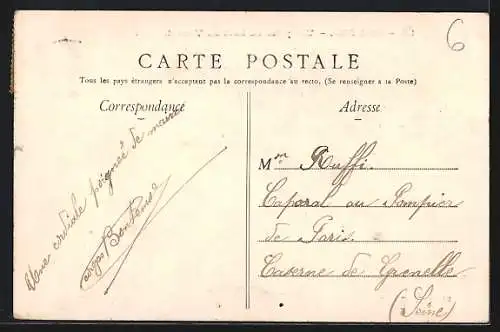 6
CARTE POSTALE
Tous les pays étrangers n'acceptent pas la correspondance au recto. (Se renseigner à la Poste)
Correspondance
Adresse
Une cordiale poignée de mains
Mon Ruffi
Caporal au Pompier
de Paris
Caserne de Grenelle
(Seine)